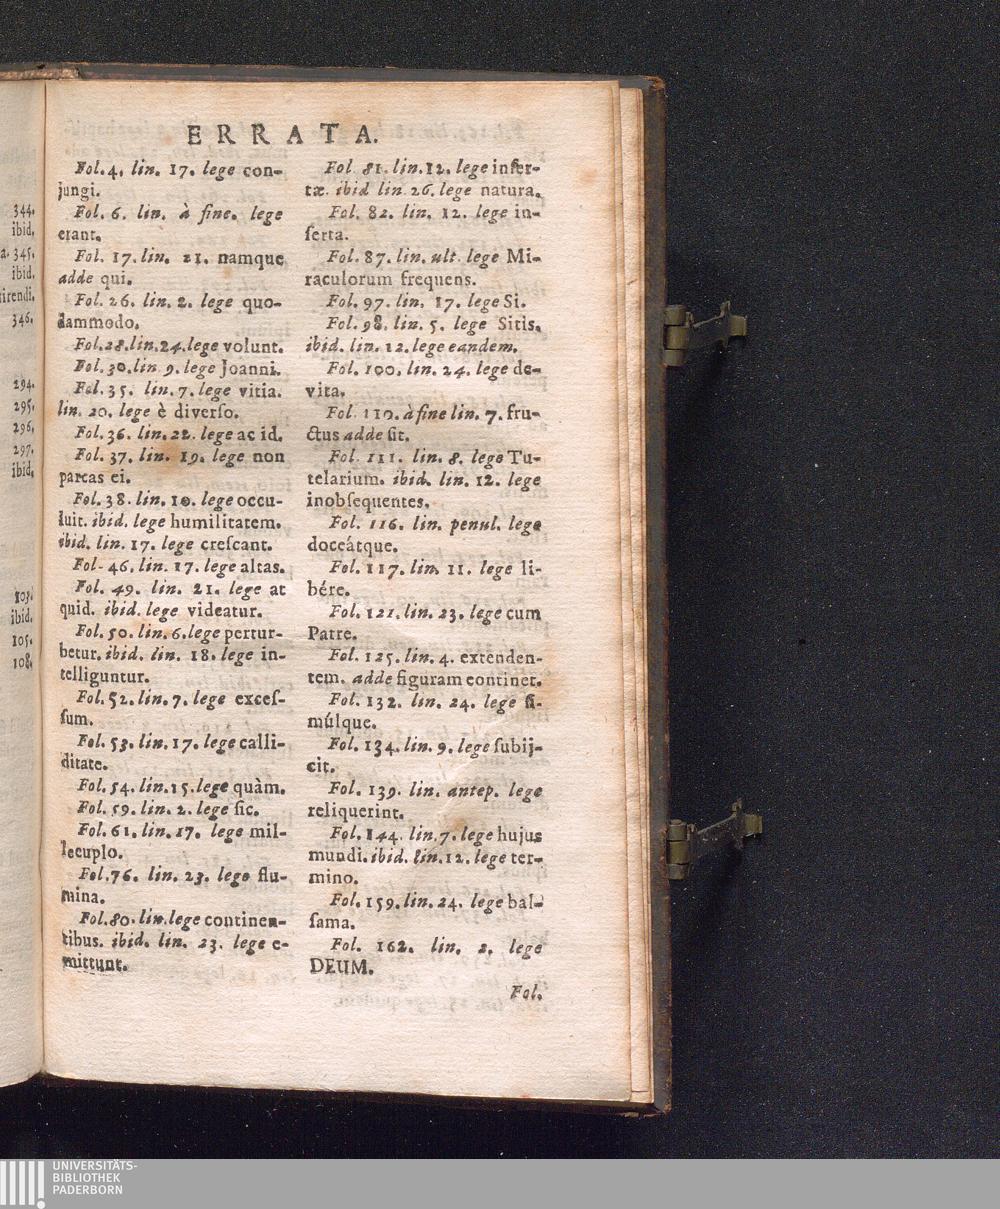 344.
ibid.
a. 345.
ibid.
irendi.
346.
294.
295.
296.
297.
ibid.
103.
ibid.
105.
108.
ERRATA.
Fol. 4. lin. 17. lege con-
jungi.
Fol. 6. lin. à fine. lege
erant.
Fol. 17. lin. 21. namque
adde qui.
Fol. 26. lin. 2. lege quo-
dammodo.
Fol. 28. lin. 24. lege volunt.
Fol. 30. lin 9. lege Joanni.
Fol. 35. lin. 7. lege vitia.
lin. 20. lege è diverſo.
Fol. 36. lin. 22. lege ac id.
Fol. 37. lin. 19. lege non
parcas ei.
Fol. 38. lin. 10. lege occu-
luit. ibid. lege humilitatem.
ibid. lin. 17. lege creſcant.
Fol- 46. lin. 17. lege altas.
Fol. 49. lin. 21. lege at
quid. ibid. lege videatur.
Fol. 50. lin. 6. lege pertur-
betur. ibid. lin. 18. lege in-
telliguntur.
Fol. 52. lin. 7. lege exceſ-
ſum.
Fol. 53. lin. 17. lege calli-
ditate.
Fol. 54. lin. 15. lege quàm.
Fol. 59. lin. 2. lege ſic.
Fol. 61. lin. 17. lege mil-
lecuplo.
Fol. 76. lin. 23. lege flu-
mina.
Fol. 80. lin. lege continen-
tibus. ibid. lin. 23. lege e-
mittunt.
Fol 81. lin. 12. lege inſer-
tæ. ibid lin 26. lege natura.
Fol. 82. lin. 12. lege in-
ſerta.
Fol. 87. lin. ult. lege Mi-
raculorum frequens.
Fol. 97. lin. 17. lege Si.
Fol. 98. lin. 5. lege Sitis.
ibid. lin. 12. lege eandem.
Fol. 100. lin. 24. lege de-
vita.
Fol 110. à fine lin. 7. fru-
ctus adde ſit.
Fol. 111. lin. 8. lege Tu-
telarium. ibid. lin. 12. lege
inobſequentes.
Fol. 116. lin. penul. lege
doceátque.
Fol. 117. lin. 11. lege li-
bére.
Fol. 121. lin. 23. lege cum
Patre.
Fol. 125. lin. 4. extenden-
tem. adde figuram continet.
Fol. 132. lin. 24. lege ſi-
múlque.
Fol. 134. lin. 9. lege ſubij-
cit.
Fol. 139. lin. antep. lege
reliquerint.
Fol. 144. lin. 7. lege hujus
mundi. ibid. lin. 12. lege ter-
mino.
Fol. 159. lin. 24. lege bal-
ſama.
Fol. 162. lin. 2. lege
DEUM.
Fol.
UNIVERSITÄTS-
BIBLIOTHEK
PADERBORN